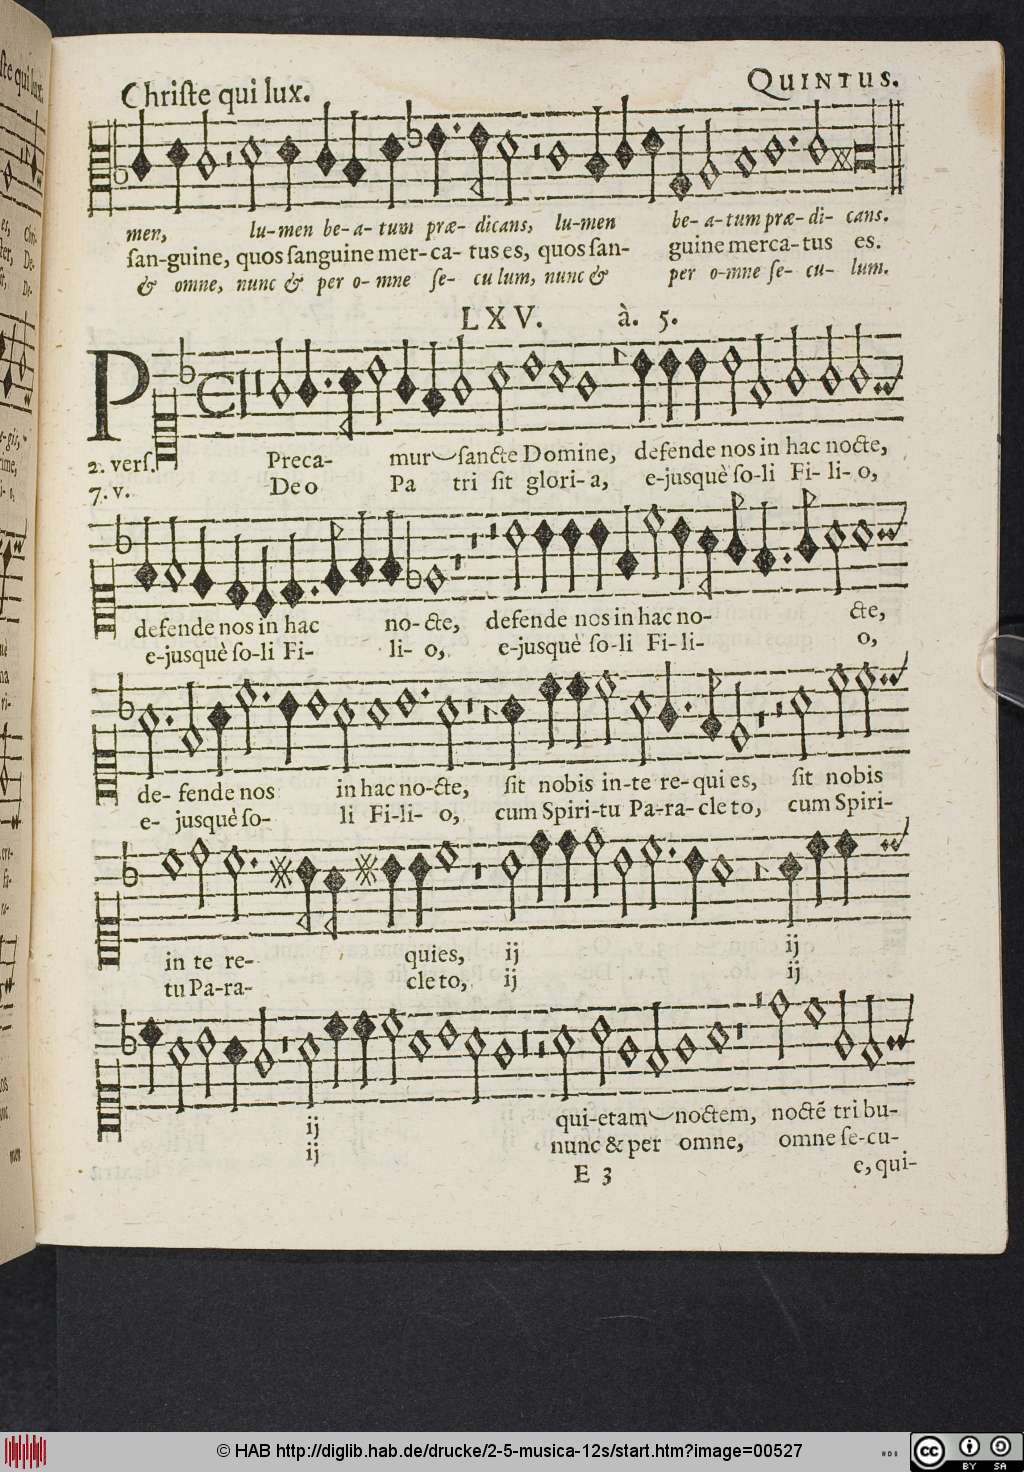 Chriſte qui lux.
QUINTUS.
men, lu-men be-a-tum præ-dicans, lu-men be-a-tum præ-di-cans.
ſan-guine, quos ſanguine mer-ca-tus es, quos ſan-guine merca-tus es.
& omne, nunc & per o-mne ſe-cu lum, nunc & per o-mne ſe-cu-lum.
LXV. à. 5.
P
2. verſ. Preca-mur ſancte Domine, defende nos in hac nocte,
7. v. Deo Pa tri ſit glori-a, e-jusquè ſo-li Fi-li-o,
defende nos in hac no-cte, defende nos in hac no-cte,
e-jusquè ſo-li Fi-li-o, e-jusquè ſo-li Fi-li-o,
de-fende nos in hac no-cte, ſit nobis in-te re-qui es, ſit nobis
e-jusquè ſo-li Fi-li-o, cum Spiri-tu Pa-ra-cle to, cum Spiri-
in te re-quies, ij ij
tu Pa-ra-cle to, ij ij
ij qui-etam noctem, noctē tri bu-
ij nunc & per omne, omne ſe-cu-
E 3
e, qui-
© HAB http://diglib.hab.de/drucke/2-5-musica-12s/start.htm?image=00527
cc BY SA